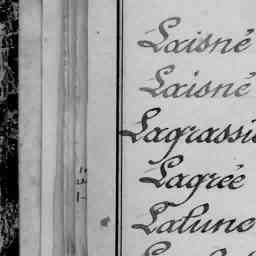 Laisné
Laisné
Lagrassi
Lagrée
Lalune